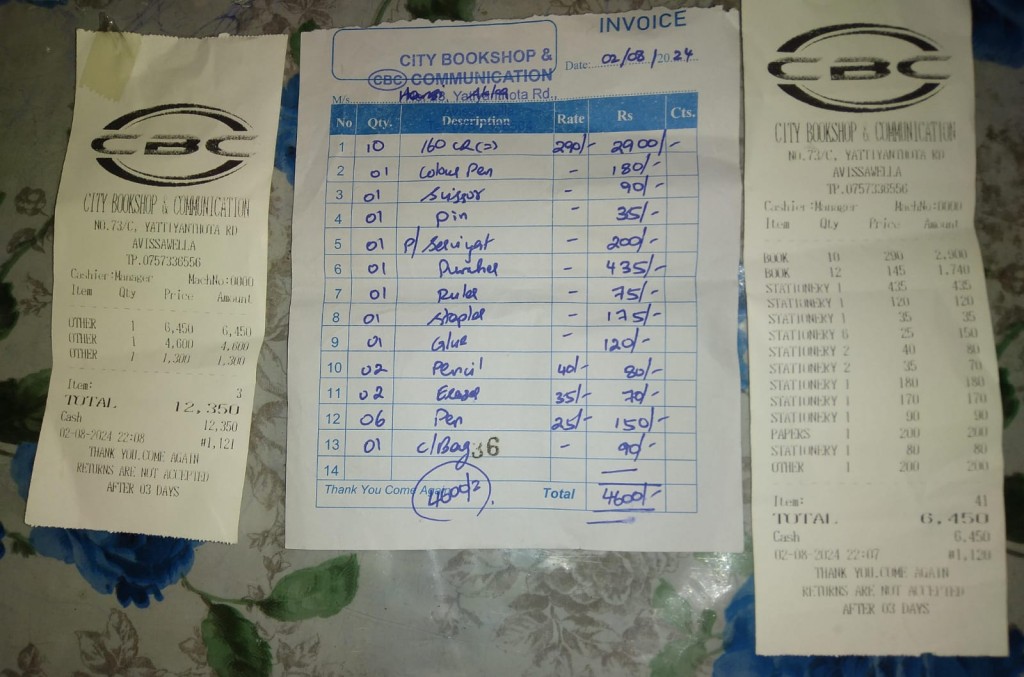 CBC
CITY BOOKSHOP & COMMUNICATION
NO.73/C, YATTIYANTHOTA RD
AVISSAWELLA
TP.0757336556
Cashier:Manager MachNo:0000
Item Qty Price Amount
OTHER 1 6,450 6,450
OTHER 1 4,600 4,600
OTHER 1 1,300 1,300
Item: 3
TOTAL 12,350
Cash 12,350
02-08-2024 22:08 #1,121
THANK YOU.COME AGAIN
RETURNS ARE NOT ACCEPTED
AFTER 03 DAYS
INVOICE
CITY BOOKSHOP &
(CBC) COMMUNICATION
Date: 02/08/2024
M/s. Yatiyanthota Rd.,
No Qty. Description Rate Rs Cts.
1 10 160 CR (=) 290/- 2900/-
2 01 Colour Pen - 180/-
3 01 Scissor - 90/-
4 01 Pin - 35/-
5 01 P/ Serviyat - 200/-
6 01 Puncher - 435/-
7 01 Ruler - 75/-
8 01 Stapler - 175/-
9 01 Glue - 120/-
10 02 Pencil 40/- 80/-
11 02 Eraser 35/- 70/-
12 06 Pen 25/- 150/-
13 01 C/Bag 36 - 90/-
14
Thank You Come Again 4600/= Total 4600/-
CBC
CITY BOOKSHOP & COMMUNICATION
NO.73/C, YATTIYANTHOTA RD
AVISSAWELLA
TP.0757336556
Cashier:Manager MachNo:0000
Item Qty Price Amount
BOOK 10 290 2,900
BOOK 12 145 1,740
STATIONERY 1 435 435
STATIONERY 1 120 120
STATIONERY 1 35 35
STATIONERY 6 25 150
STATIONERY 2 40 80
STATIONERY 2 35 70
STATIONERY 1 180 180
STATIONERY 1 170 170
STATIONERY 1 90 90
PAPERS 1 200 200
STATIONERY 1 80 80
OTHER 1 200 200
Item: 41
TOTAL 6,450
Cash 6,450
02-08-2024 22:07 #1,120
THANK YOU.COME AGAIN
RETURNS ARE NOT ACCEPTED
AFTER 03 DAYS